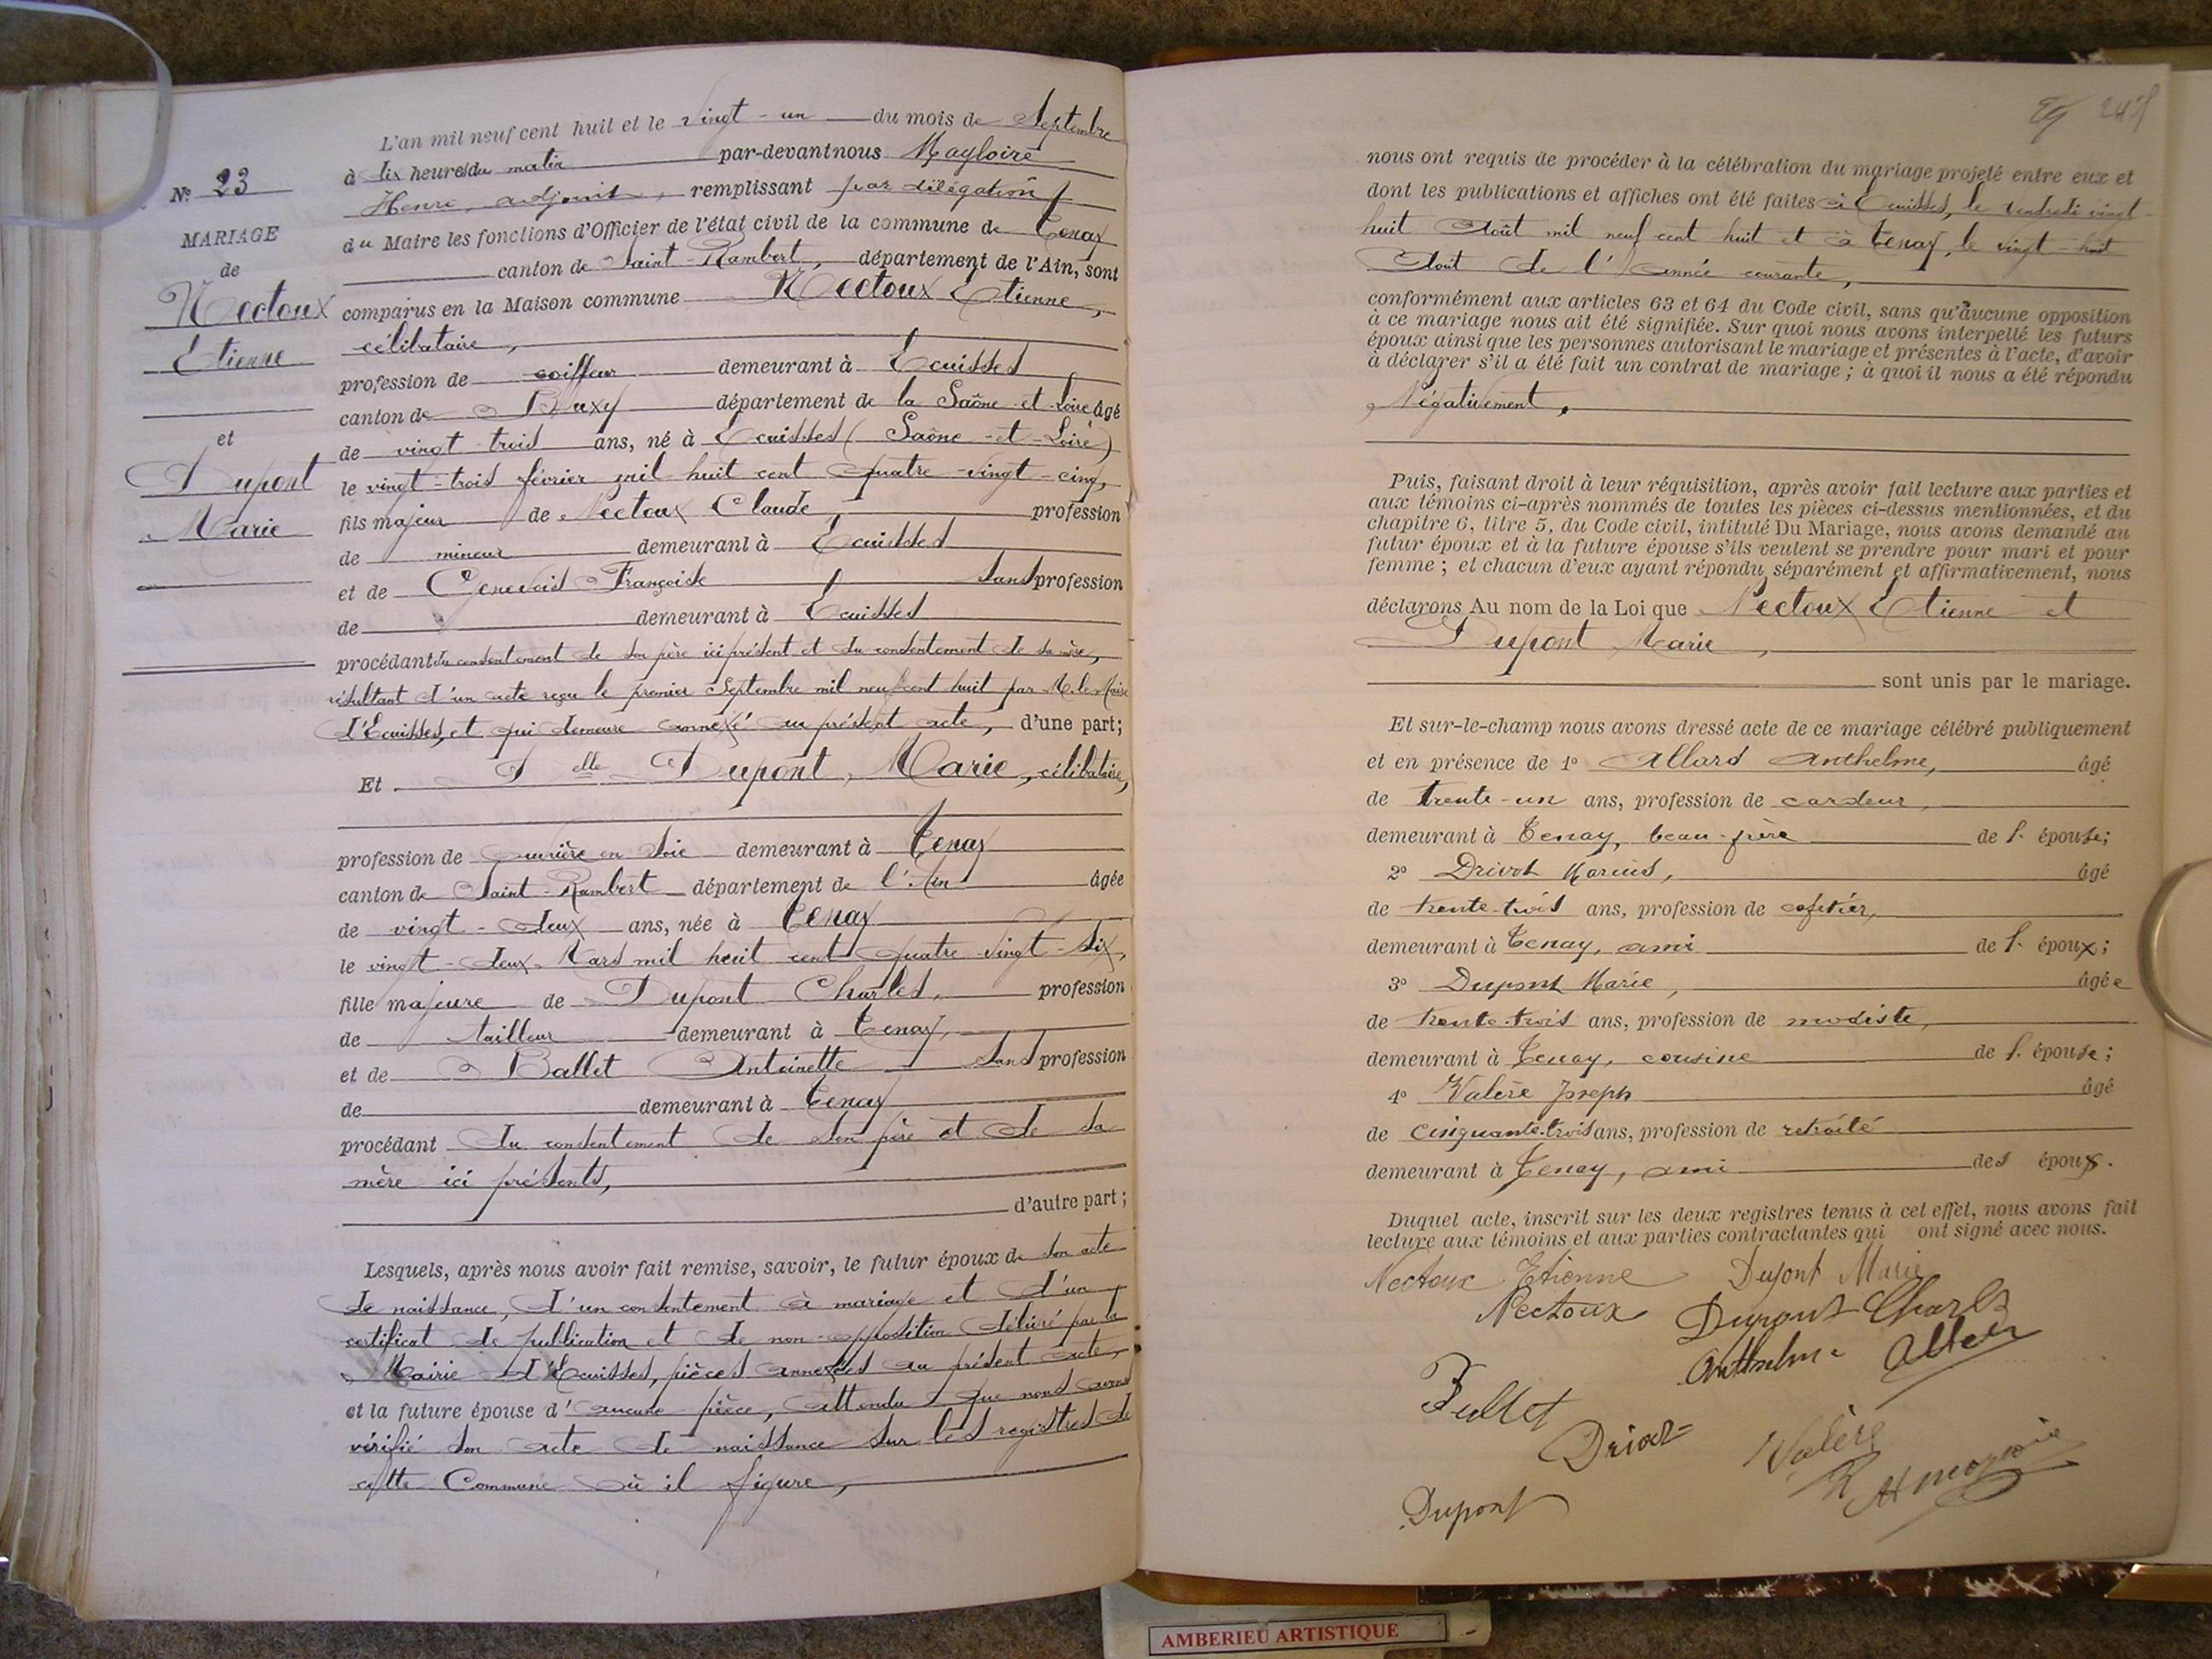 N° 23
MARIAGE
de
Nectoux
Etienne
et
Dupont
Marie
L'an mil neuf cent huit et le vingt-un du mois de Septembre
à dix heures du matin par-devant nous Magloire
Henri, adjoint, remplissant par délégation
du Maire les fonctions d'Officier de l'état civil de la commune de Tenay
canton de Saint-Rambert, département de l'Ain, sont
comparus en la Maison commune Nectoux Etienne,
célibataire,
profession de coiffeur demeurant à Ecuisses
canton de Buxy département de la Saône-et-Loire âgé
de vingt trois ans, né à Ecuisses (Saône-et-Loire)
le vingt-trois février mil huit cent quatre-vingt-cinq,
fils majeur de Nectoux Claude, profession
de mineur demeurant à Ecuisses
et de Genevois Françoise sans profession
de demeurant à Ecuisses
procédant du consentement de son père ici présent et du consentement de sa mère,
résultant d'un acte reçu le premier Septembre mil neuf cent huit par M. le Maire
d'Ecuisses, et qui demeure annexé au présent acte, d'une part;
Et Delle Dupont, Marie, célibataire,
profession de ouvrière en soie demeurant à Tenay
canton de Saint-Rambert département de l'Ain âgée
de vingt-deux ans, née à Tenay
le vingt-deux Mars mil huit cent quatre vingt-six,
fille majeure de Dupont Charles, profession
de tailleur demeurant à Tenay,
et de Ballet Antoinette sans profession
de demeurant à Tenay
procédant du consentement de son père et de sa
mère ici présents,
d'autre part;
Lesquels, après nous avoir fait remise, savoir, le futur époux de son acte
de naissance, d'un consentement à mariage et d'un
certificat de publication et de non-opposition délivré par la
Mairie d'Ecuisses, pièces annexées au présent acte,
et la future épouse d'aucune pièce, attendu que nous avons
vérifié son acte de naissance sur les registres de
cette Commune où il figure,
nous ont requis de procéder à la célébration du mariage projeté entre eux et
dont les publications et affiches ont été faites à Ecuisses, le vendredi vingt-
huit Août mil neuf cent huit et à Tenay, le vingt-huit
Août de l'année courante,
conformément aux articles 63 et 64 du Code civil, sans qu'aucune opposition
à ce mariage nous ait été signifiée. Sur quoi nous avons interpellé les futurs
époux ainsi que les personnes autorisant le mariage et présentes à l'acte, d'avoir
à déclarer s'il a été fait un contrat de mariage; à quoi il nous a été répondu
Négativement,
Puis, faisant droit à leur réquisition, après avoir fait lecture aux parties et
aux témoins ci-après nommés de toutes les pièces ci-dessus mentionnées, et du
chapitre 6, titre 5, du Code civil, intitulé Du Mariage, nous avons demandé au
futur époux et à la future épouse s'ils veulent se prendre pour mari et pour
femme; et chacun d'eux ayant répondu séparément et affirmativement, nous
déclarons Au nom de la Loi que Nectoux Etienne et
Dupont Marie,
sont unis par le mariage.
Et sur-le-champ nous avons dressé acte de ce mariage célébré publiquement
et en présence de 1° Allard Anthelme, âgé
de trente-un ans, profession de cardeur,
demeurant à Tenay, beau-frère de l' épouse;
2° Drivot Marius, âgé
de trente-trois ans, profession de cafetier,
demeurant à Tenay, ami de l' époux;
3° Dupont Marie, âgée
de trente-trois ans, profession de modiste,
demeurant à Tenay, cousine de l' épouse;
4° Valère Joseph âgé
de cinquante-trois ans, profession de retraité
demeurant à Tenay, ami des époux.
Duquel acte, inscrit sur les deux registres tenus à cet effet, nous avons fait
lecture aux témoins et aux parties contractantes qui ont signé avec nous.
Nectoux Etienne Dupont Marie
Nectoux Dupont Charles
Anthelme
Valère
Dupont
AMBERIEU ARTISTIQUE